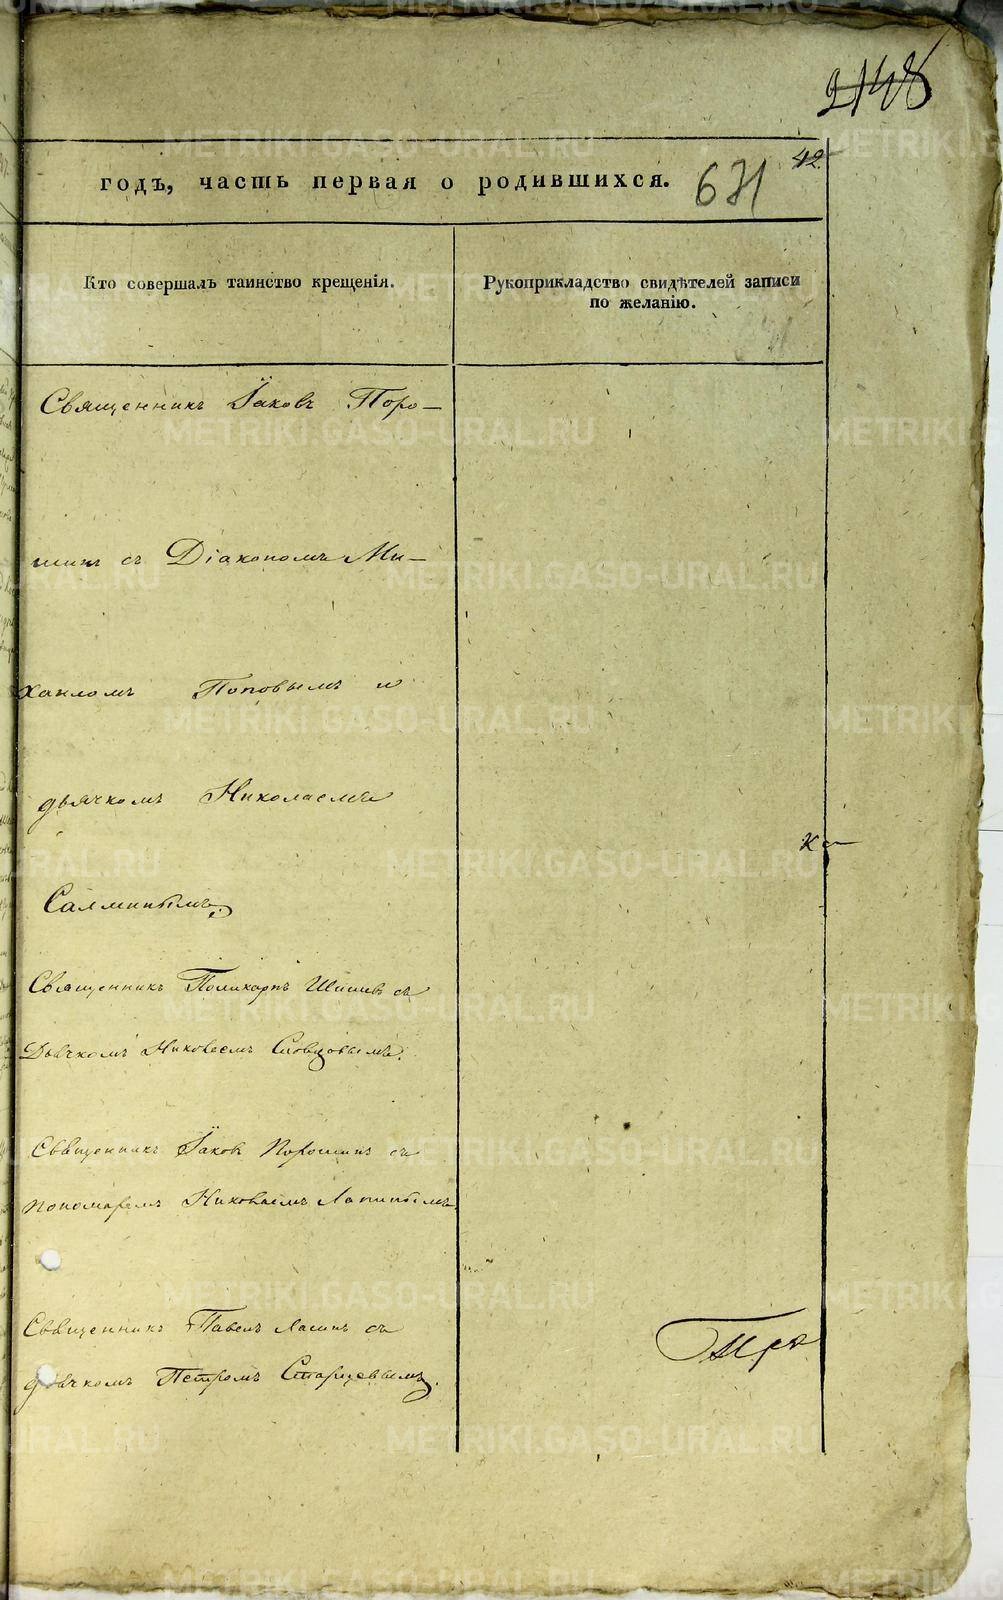 2148
42
годъ, часть первая о родившихся. 671
Кто совершалъ таинство крещенія.
Рукоприкладство свидѣтелей записи
по желанію.
Священникъ Іаковъ Поро-
шинъ съ Діакономъ Ми-
хаиломъ Поповымъ и
дьячкомъ Николаемъ
Ка-
Салминымъ.
Священникъ Поликарпъ съ
Дьячкомъ Николаемъ Словцовымъ.
Священникъ Іаковъ Порошинъ съ
пономаремъ Николаемъ Лапинымъ
Священникъ Павелъ съ
дьячкомъ Петромъ Старцевымъ.
METRIKI.GASO-URAL.RU